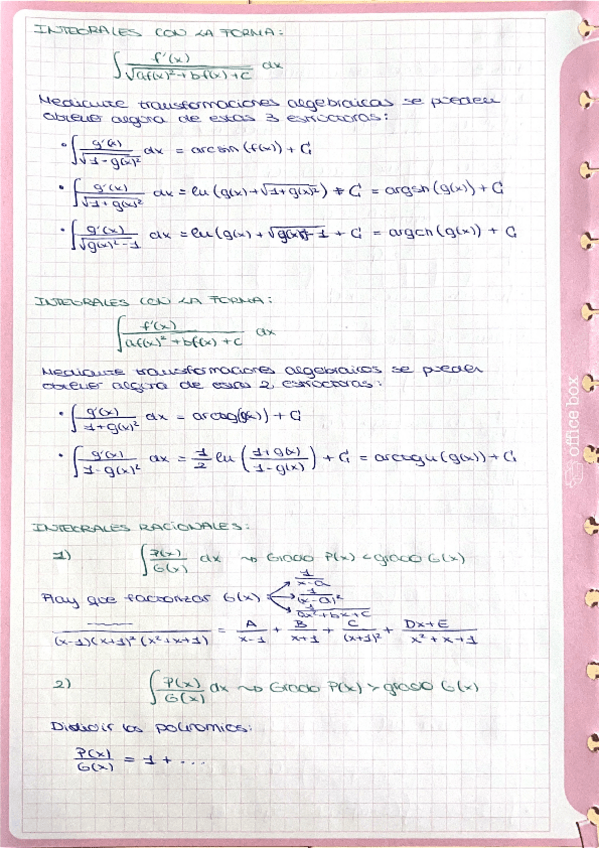 INTEGRALES CON LA FORMA:
∫ f'(x) / √(af(x)²+bf(x)+c) dx
Mediante transformaciones algebraicas se pueden
obtener alguna de estas 3 estructuras:
• ∫ g'(x) / √(1-g(x)²) dx = arcsin (f(x)) + C
• ∫ g'(x) / √(1+g(x)²) dx = ln (g(x)+√(1+g(x)²)) + C = argsh (g(x)) + C
• ∫ g'(x) / √(g(x)²-1) dx = ln (g(x)+√(g(x)²-1) + C = argch (g(x)) + C
INTEGRALES CON LA FORMA:
∫ f'(x) / (af(x)²+bf(x)+c) dx
Mediante transformaciones algebraicas se pueden
obtener alguna de estas 2 estructuras:
• ∫ g'(x) / (1+g(x)²) dx = arctg(g(x)) + C
• ∫ g'(x) / (1-g(x)²) dx = 1/2 ln ((1+g(x)) / (1-g(x))) + C = arctgh (g(x)) + C
INTEGRALES RACIONALES:
1) ∫ P(x)/G(x) dx ⇝ Grado P(x) < grado G(x)
Hay que factorizar G(x) → 1/(x-a) → 1/(x-a)² → 1/(ax²+bx+c)
/ (x-1)(x+1)²(x²+x+1) = A/(x-1) + B/(x+1) + C/(x+1)² + (Dx+E)/(x²+x+1)
2) ∫ P(x)/G(x) dx ⇝ Grado P(x) > grado G(x)
Dividir los polinomios:
P(x)/G(x) = 1 + ...
office box